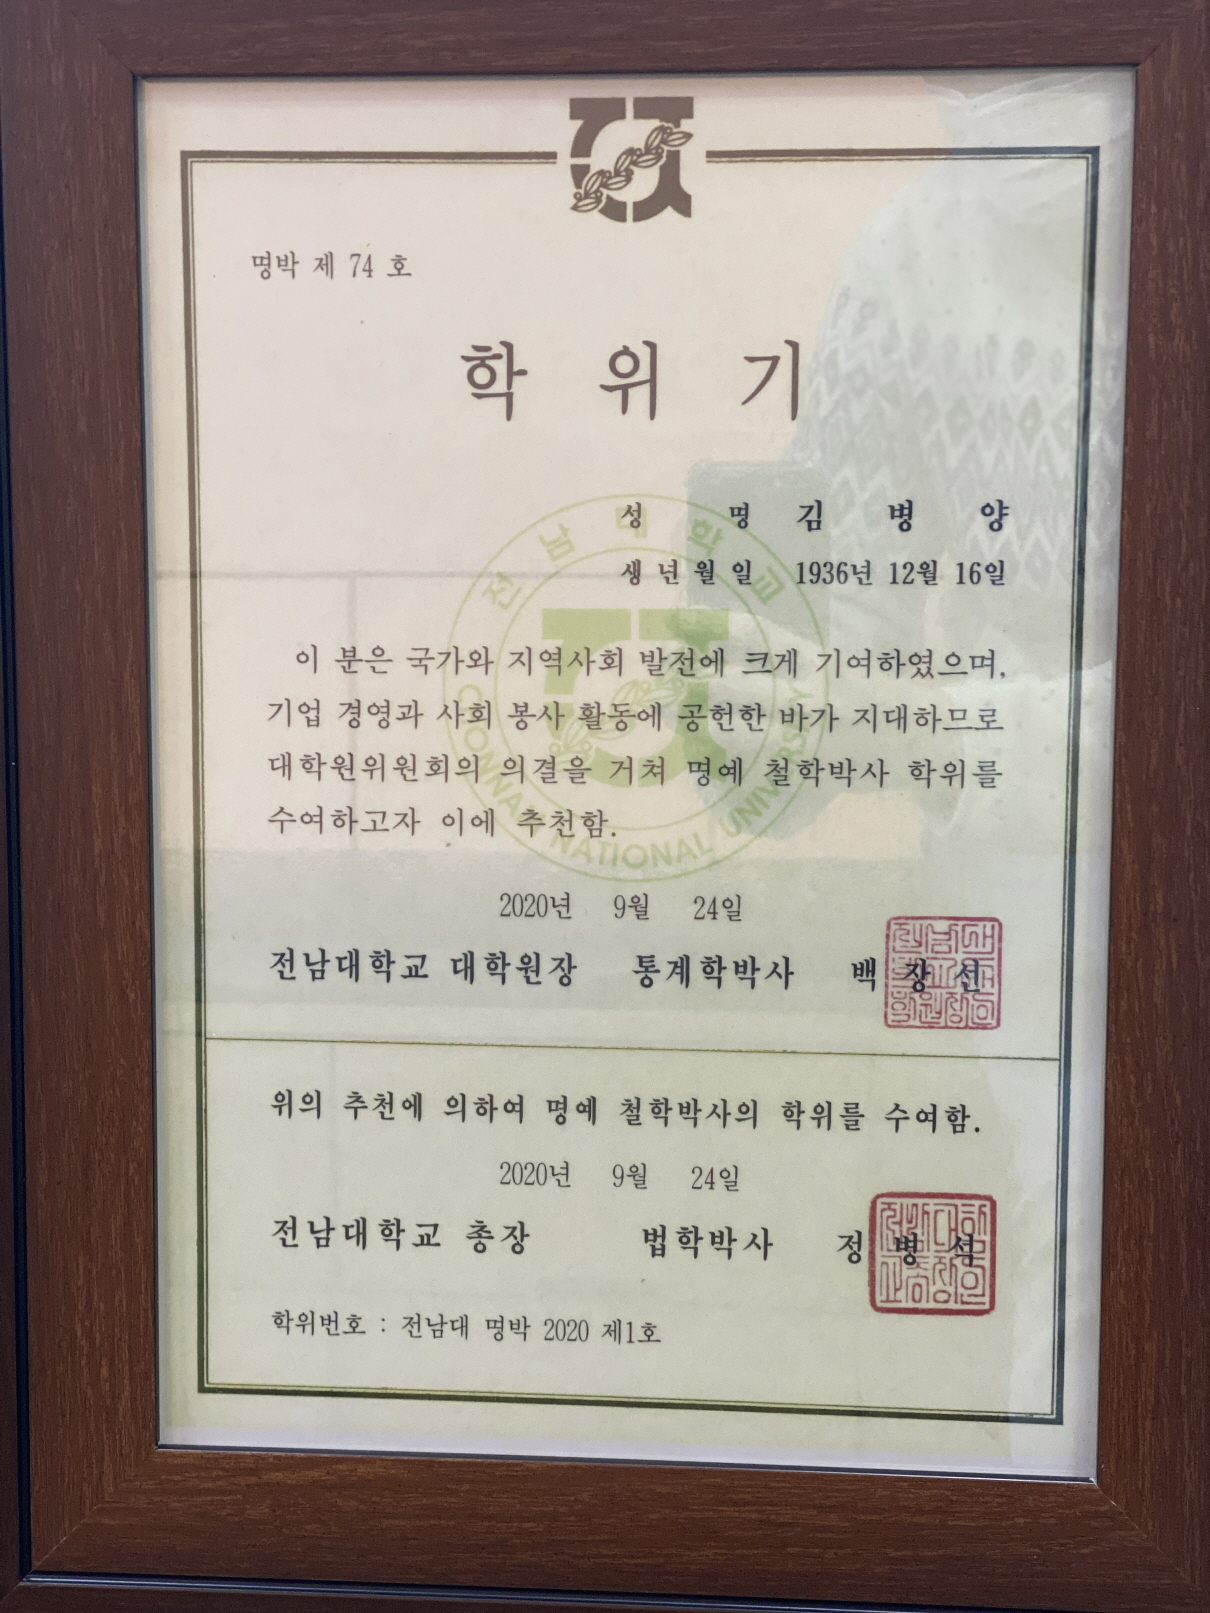 명박 제 74 호
학 위 기
성 명 김 병 양
생 년 월 일 1936년 12월 16일
전남대학교
CHONNAM NATIONAL UNIVERSITY
이 분은 국가와 지역사회 발전에 크게 기여하였으며,
기업 경영과 사회 봉사 활동에 공헌한 바가 지대하므로
대학원위원회의 의결을 거쳐 명예 철학박사 학위를
수여하고자 이에 추천함.
2020년 9월 24일
전남대학교 대학원장 통계학박사 백 장 선
위의 추천에 의하여 명예 철학박사의 학위를 수여함.
2020년 9월 24일
전남대학교 총장 법학박사 정 병 석
학위번호 : 전남대 명박 2020 제1호